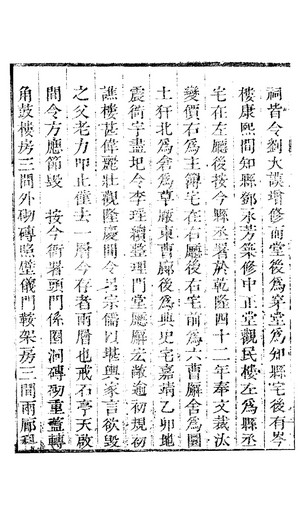 祠昔令劉大謨增修前堂後爲穿堂爲知縣宅後有岑
樓康熙間知縣鄧永芳築修中正堂觀民樓左爲縣丞
宅在左廳後按今縣丞署於乾隆四十二年奉文裁汰
變價右爲主簿宅在右廳後右宅前爲六曹廨舍爲圓
土犴北爲倉爲草厰東曹廨後爲典史宅嘉靖乙卯地
震衙宇盡圮令李瑾續整理門堂廳廨宏敞逾初規初
譙樓甚偉麗壯觀隆慶間令吳宗儒以堪輿家言欲毀
之父老力叩止僅去一層今存者兩層也戒石亭天啟
間令方應節毀　按今衙署頭門係圈洞磚砌重簷轉
角鼓樓房三間外砌磚照壁儀門鞍架房三間兩廊科